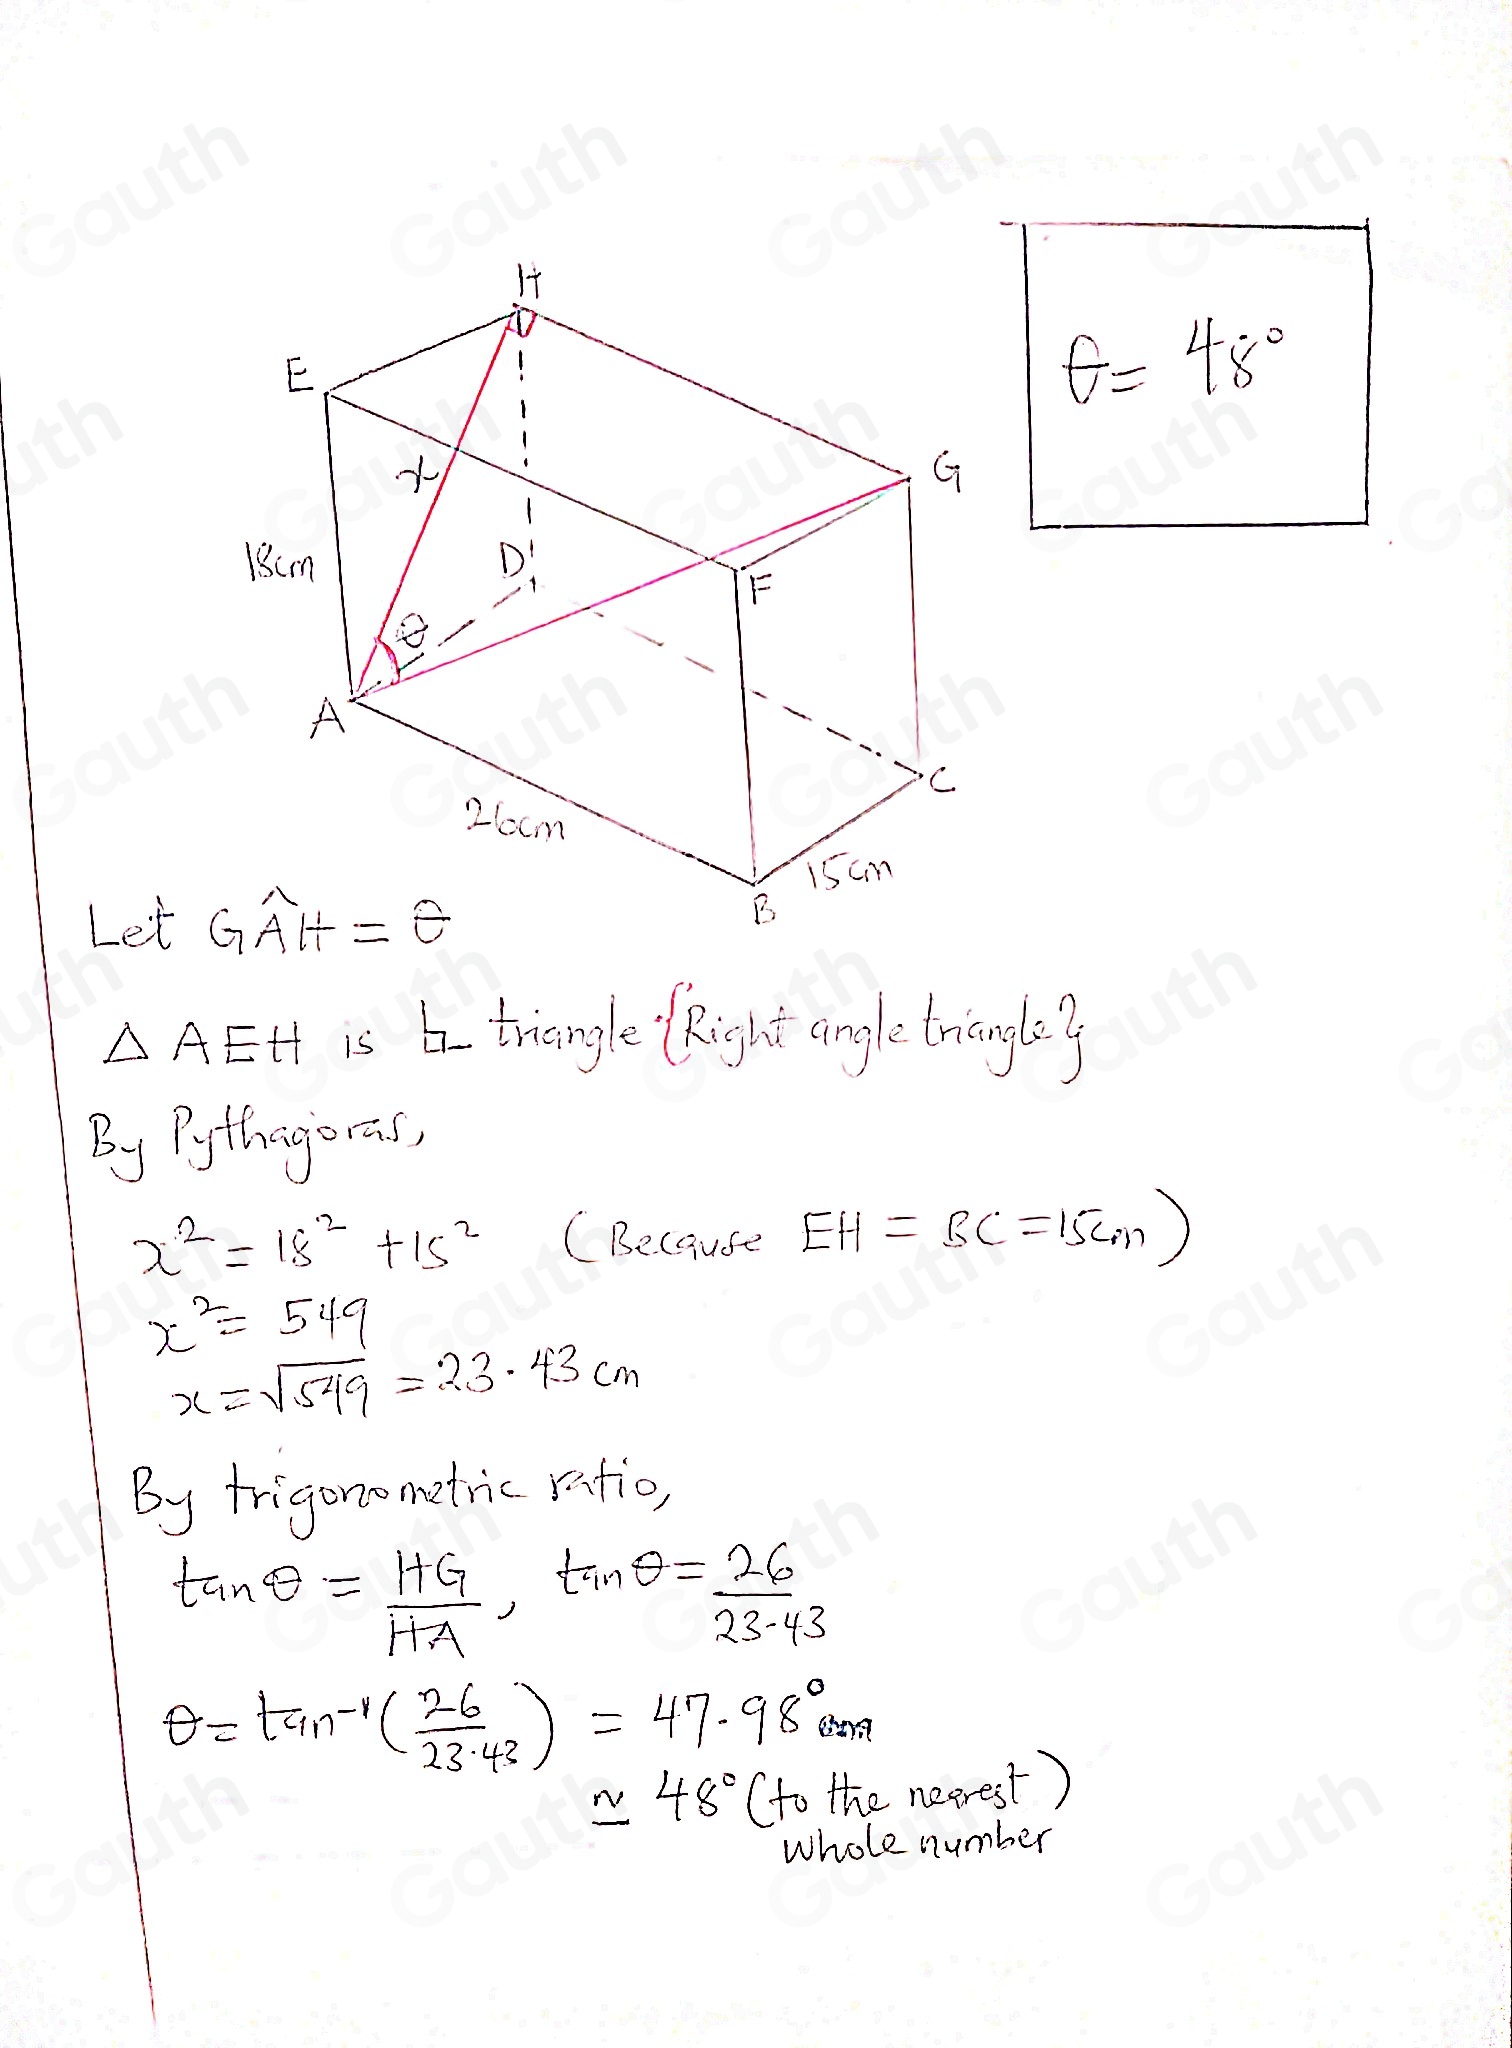 H
E
θ = 48°
x
G
18cm
D
F
θ
A
C
26cm
15cm
B
Let GÂH = θ
△ AEH is triangle {Right angle triangle}
By Pythagoras,
x² = 18² + 15² (Because EH = BC = 15cm)
x² = 549
x = √549 = 23.43 cm
By trigonometric ratio,
tan θ = HG/HA, tan θ = 26/23.43
θ = tan⁻¹(26/23.43) = 47.98°
≃ 48° (to the nearest)
whole number
Gauth